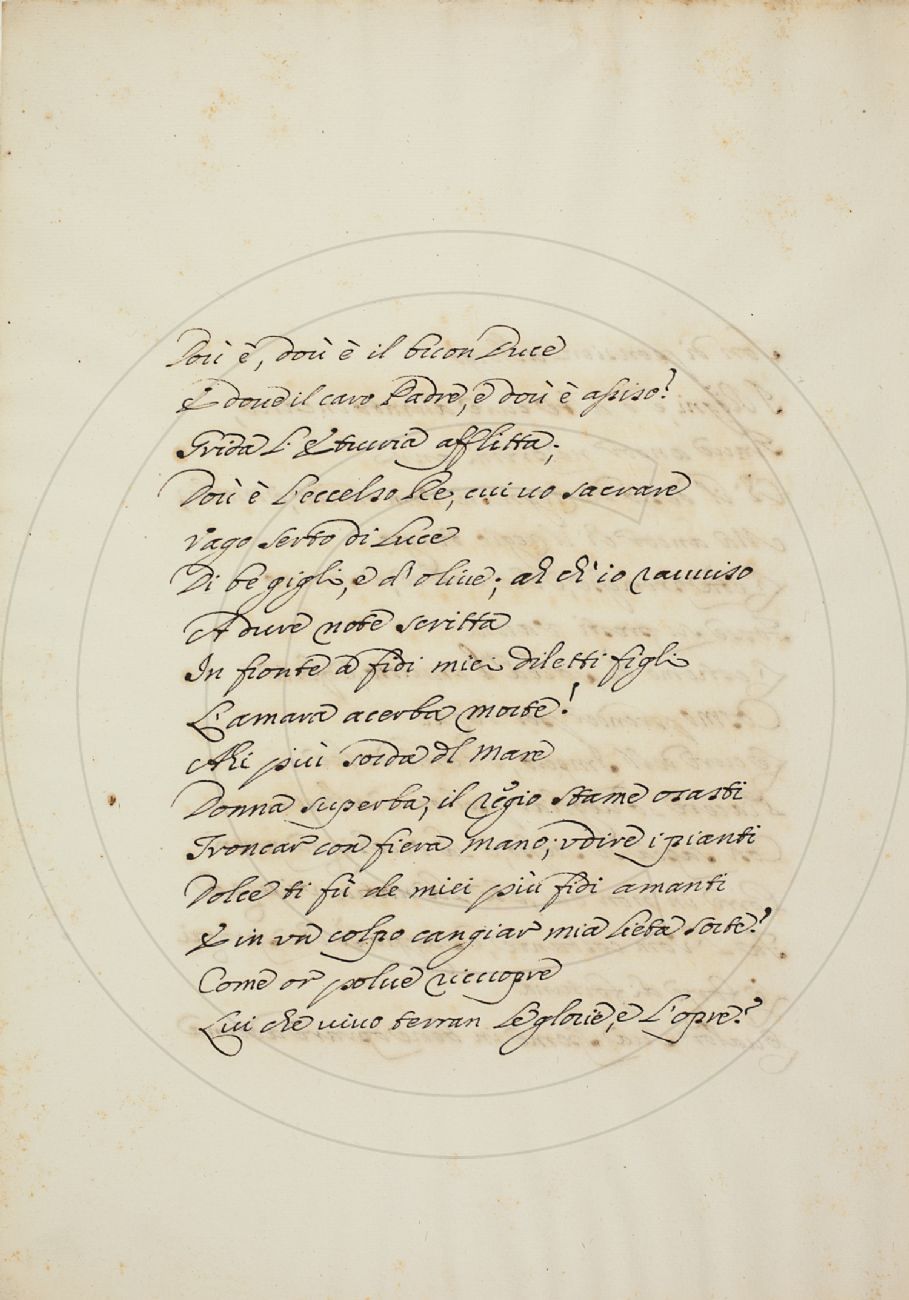 Doù è, doù è il buon Duce
E doue il caro Padre, e doù è assiso?
Grida L'Etturia afflitta;
Doù è L'eccelso Re, cui uo sacrare
Vago serto di Luce
Di be gigli, e d' oliue; ah ch' io rauuiso
A dure note scritta
In fronte a fidi miei diletti figli
L'amara acerba morte!
Ahi più sorda dl Mare
Donna superba, il regio stame osasti
Troncar con fiera mano; udire i pianti
Dolce ti fù de miei più fidi amanti
E in un colpo cangiar mia Lieta sorte?
Come or polue ricuopre
Lui che uiuo terran Le glorie, e L'opre?